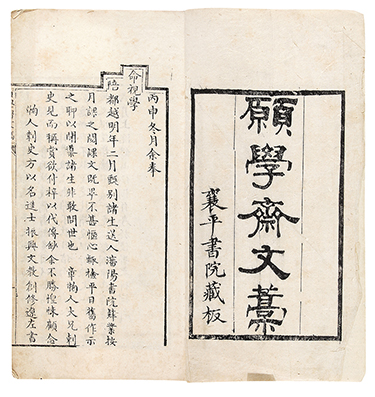 願學齋文藁
襄平書院藏板
丙申冬月余奉
命視學
陪都越明年二月甄別諸生送入瀋陽書院肄業按
月課之閲課文既畢不甚愜心輒檢平日舊作示
之聊以開蒙諸生非敢問世也 人大兄刺
史見而稱賞欲付梓以代傳鈔余不勝惶悚顧念
人刺史方以名進士振興文教創修遼左書